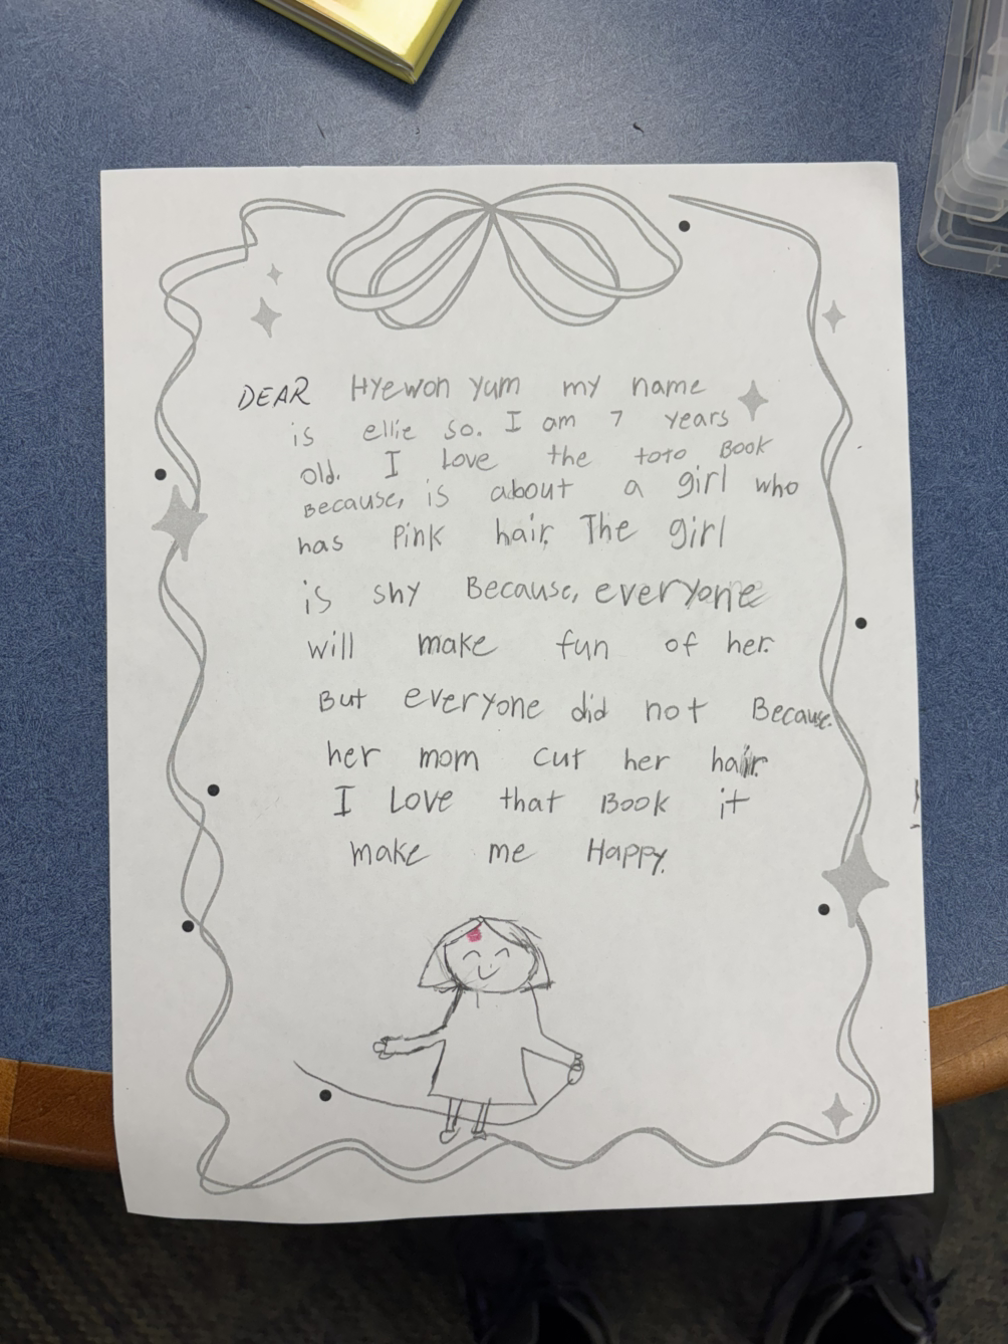 DEAR Hyewon Yum my name
is ellie so. I am 7 years
old. I Love the toto Book
Because, is about a girl who
has Pink hair. The girl
is shy Because, everyone
will make fun of her.
But everyone did not Because.
her mom cut her hair.
I Love that Book it
make me Happy.